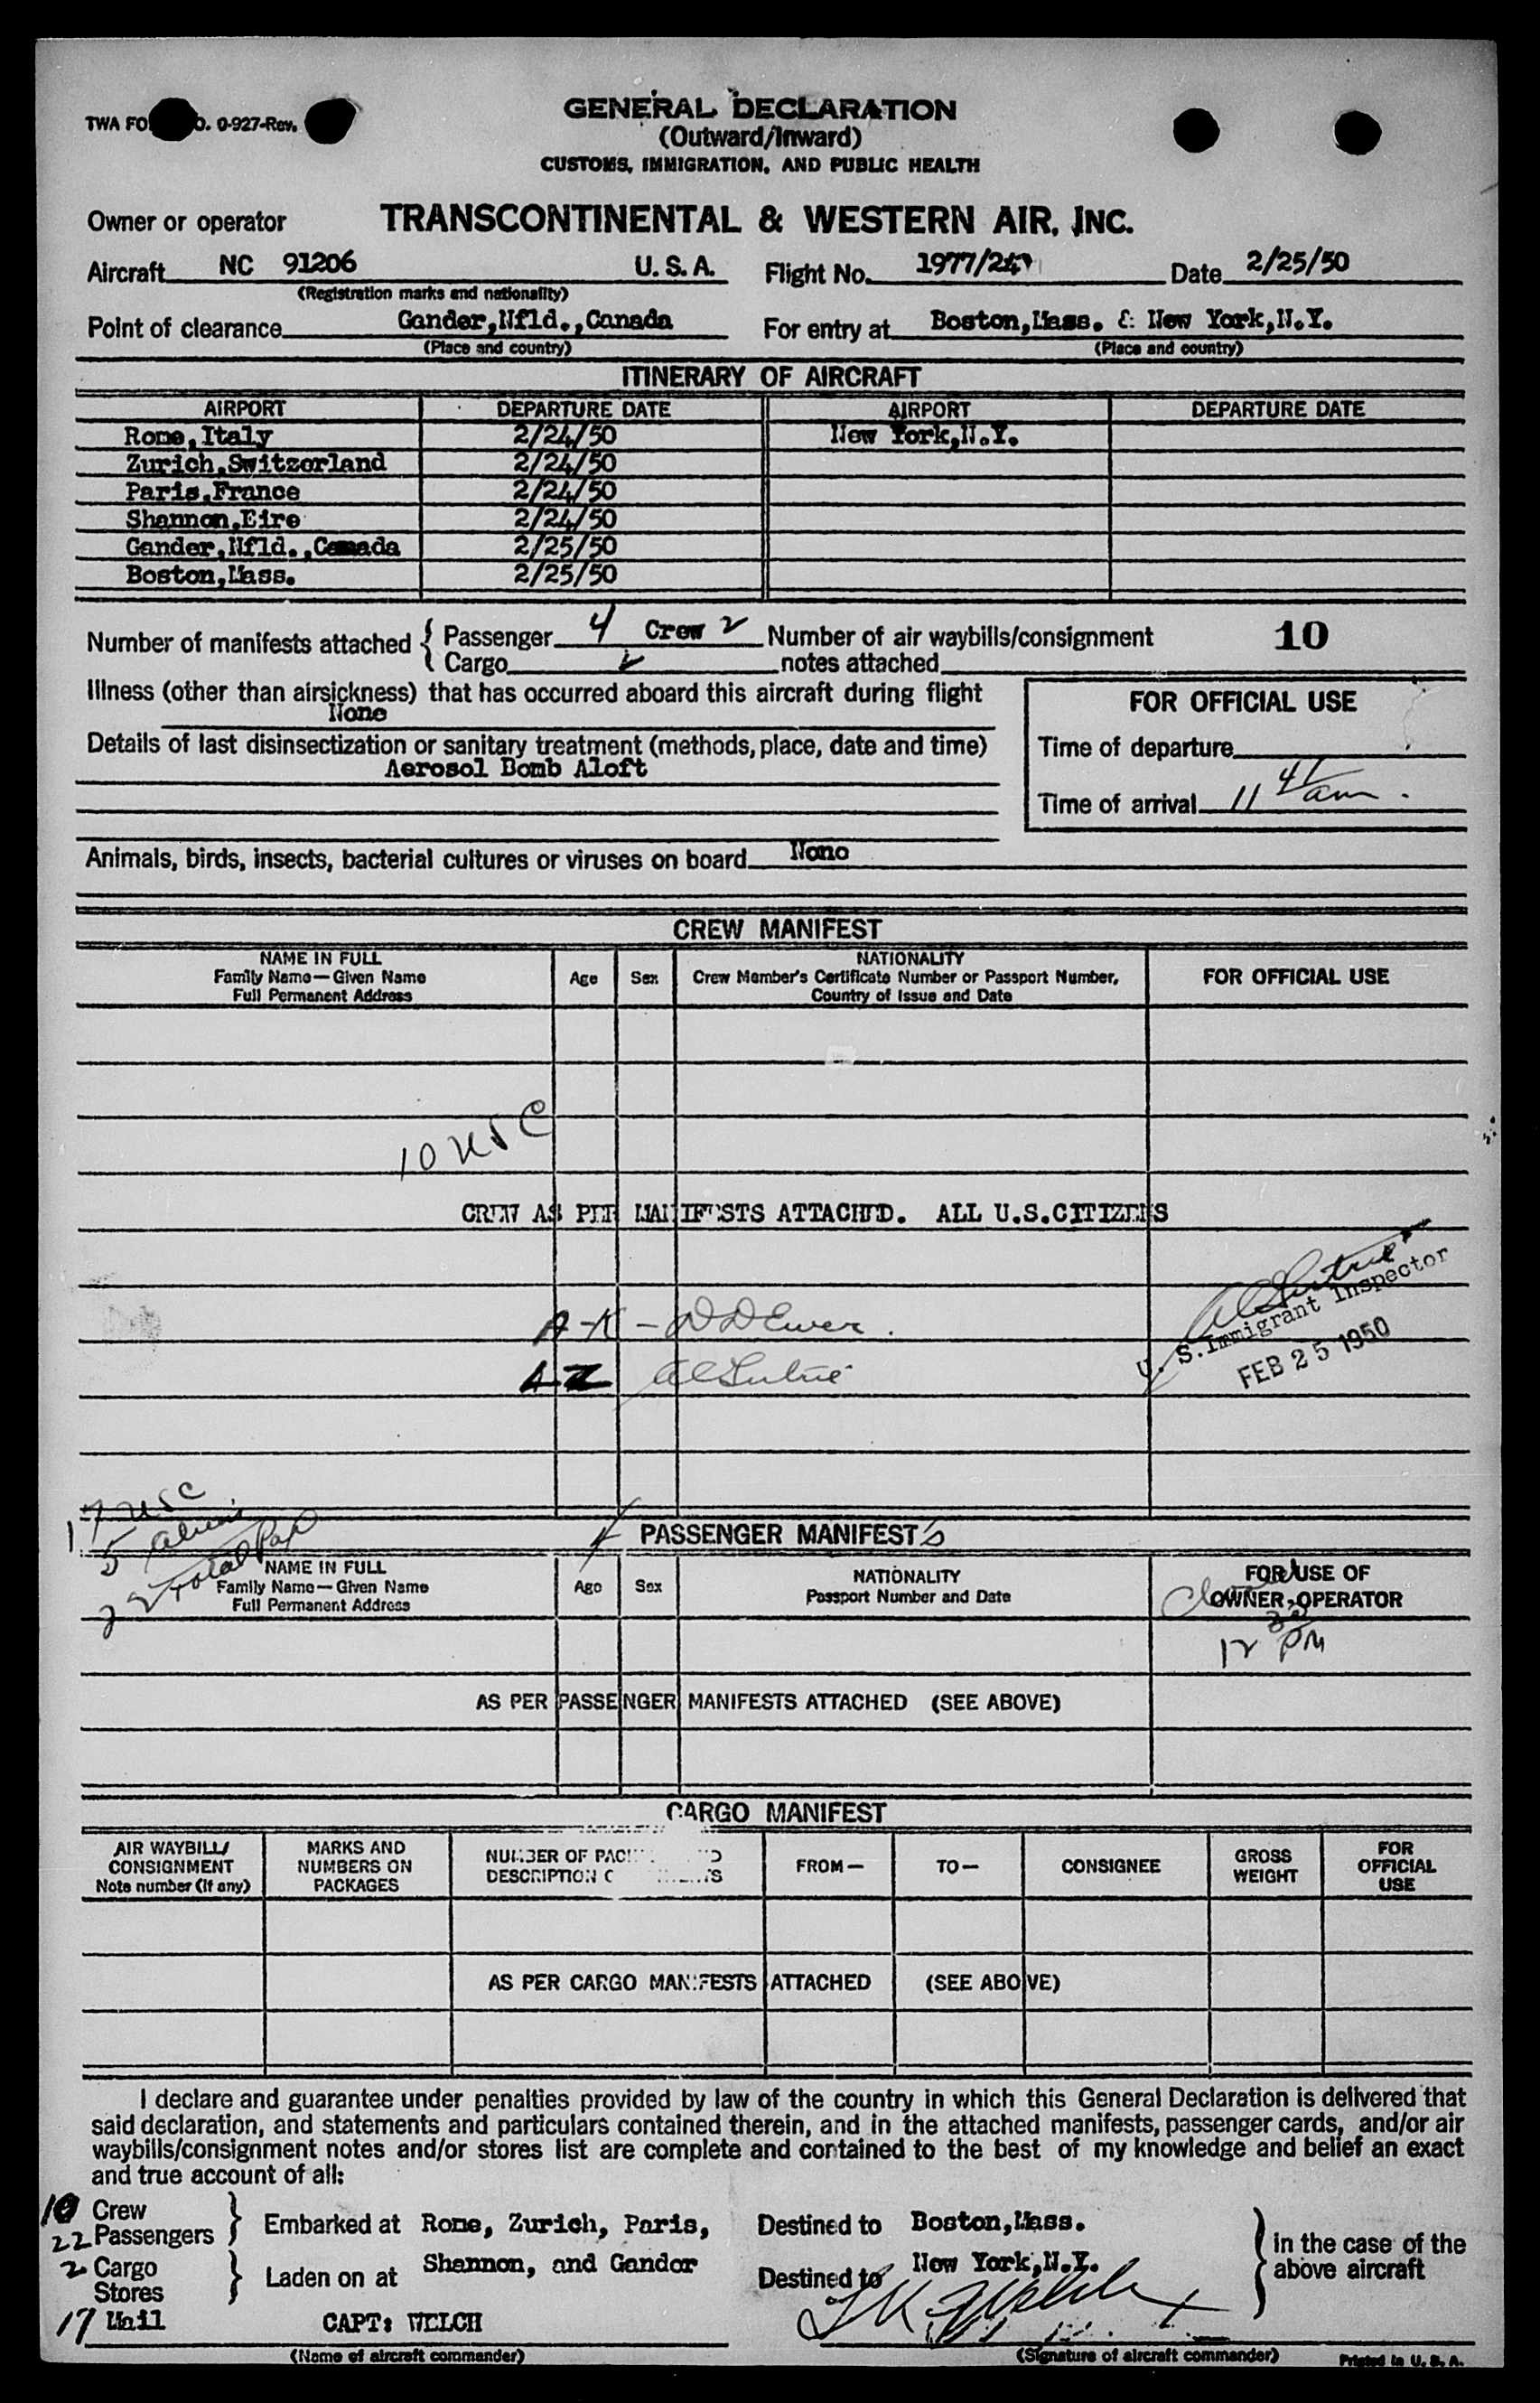 GENERAL DECLARATION
TWA FO O. 0-927-Rev.
(Outward/Inward)
CUSTOMS, IMMIGRATION, AND PUBLIC HEALTH
Owner or operator TRANSCONTINENTAL & WESTERN AIR, INC.
Aircraft NC 91206 U. S. A. Flight No. 1977/24 Date 2/25/50
(Registration marks and nationality)
Point of clearance Gander,Nfld.,Canada For entry at Boston,Mass. & New York,N.Y.
(Place and country) (Place and country)
ITINERARY OF AIRCRAFT
AIRPORT DEPARTURE DATE AIRPORT DEPARTURE DATE
Rome,Italy 2/24/50 New York,N.Y.
Zurich,Switzerland 2/24/50
Paris,France 2/24/50
Shannon,Eire 2/24/50
Gander,Nfld.,Canada 2/25/50
Boston,Mass. 2/25/50
Number of manifests attached { Passenger 4 Crew 2 Number of air waybills/consignment 10
{ Cargo notes attached
Illness (other than airsickness) that has occurred aboard this aircraft during flight
None
FOR OFFICIAL USE
Details of last disinsectization or sanitary treatment (methods, place, date and time)
Aerosol Bomb Aloft
Time of departure
Time of arrival 11 41 am.
Animals, birds, insects, bacterial cultures or viruses on board None
CREW MANIFEST
NAME IN FULL
Family Name—Given Name
Full Permanent Address
Age Sex
NATIONALITY
Crew Member's Certificate Number or Passport Number,
Country of Issue and Date
FOR OFFICIAL USE
10 USC
CREW AS PER MANIFESTS ATTACHED. ALL U.S.CITIZENS
A-K - DDEwer.
A-Z
U. S. Immigrant Inspector
FEB 25 1950
17 USC
5 aliens
22 Total Pax
4 PASSENGER MANIFEST's
NAME IN FULL
Family Name—Given Name
Full Permanent Address
Age Sex
NATIONALITY
Passport Number and Date
FOR USE OF
OWNER-OPERATOR
12 30 PM
AS PER PASSENGER MANIFESTS ATTACHED (SEE ABOVE)
CARGO MANIFEST
AIR WAYBILL/
CONSIGNMENT
Note number (if any)
MARKS AND
NUMBERS ON
PACKAGES
NUMBER OF
DESCRIPTION
FROM—
TO—
CONSIGNEE
GROSS
WEIGHT
FOR
OFFICIAL
USE
AS PER CARGO MANIFESTS ATTACHED (SEE ABOVE)
I declare and guarantee under penalties provided by law of the country in which this General Declaration is delivered that
said declaration, and statements and particulars contained therein, and in the attached manifests, passenger cards, and/or air
waybills/consignment notes and/or stores list are complete and contained to the best of my knowledge and belief an exact
and true account of all:
10 Crew
22 Passengers } Embarked at Rome, Zurich, Paris, Destined to Boston,Mass.
2 Cargo
Stores } Laden on at Shannon, and Gander Destined to New York,N.Y.
} in the case of the
above aircraft
17 Mail CAPT: WELCH
(Name of aircraft commander) (Signature of aircraft commander) Printed in U. S. A.